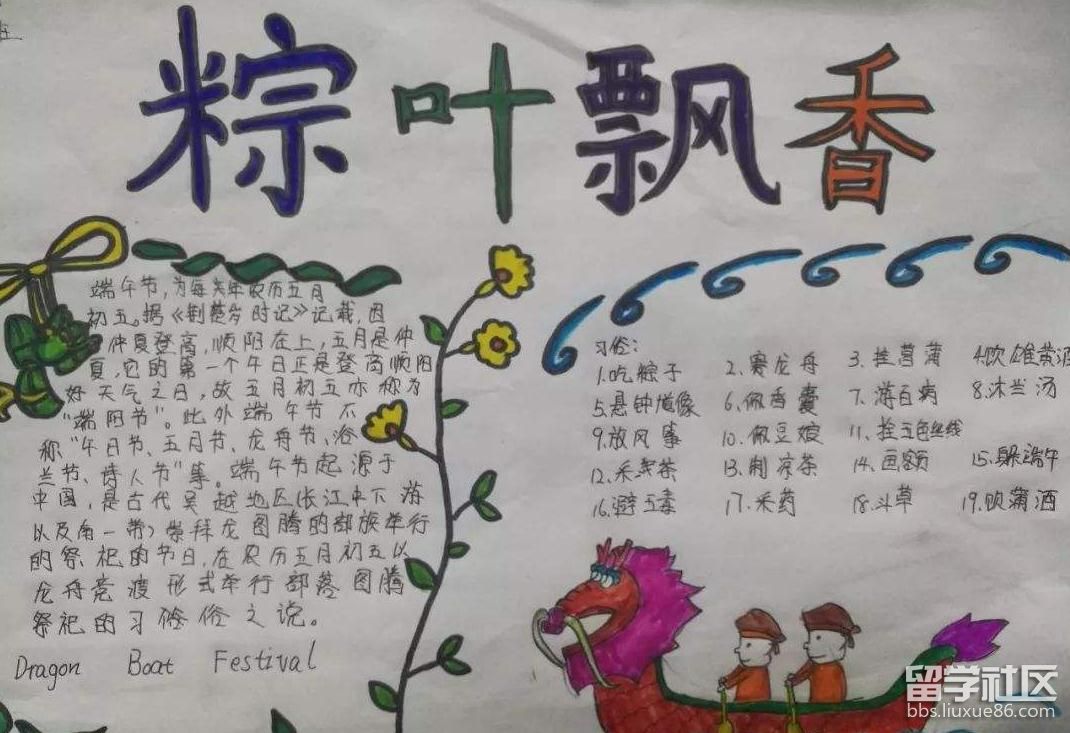 粽叶飘香
端午节,为每年农历五月
初五。据《荆楚岁时记》记载,因
仲夏登高,顺阳在上,五月是仲
夏,它的第一个午日正是登高顺阳
好天气之日,故五月初五亦称为
"端阳节"。此外端午节不
称"午日节、五月节、龙舟节、浴
兰节、诗人节"等。端午节起源于
中国,是古代吴越地区(长江中下游
以及南一带)崇拜龙图腾的部族举行
的祭祀的节日,在农历五月初五以
龙舟竞渡形式举行部落图腾
祭祀的习俗之说。
Dragon Boat Festival
习俗:
1.吃粽子 2.赛龙舟 3.挂菖蒲 4.饮雄黄酒
5.悬钟馗像 6.佩香囊 7.游百病 8.沐兰汤
9.放风筝 10.佩豆娘 11.拴五色丝线
12.采茶 13.制凉茶 14.画额 15.躲端午
16.避五毒 17.采药 18.斗草 19.饮蒲酒
留学社区
bbs.liuxue86.com